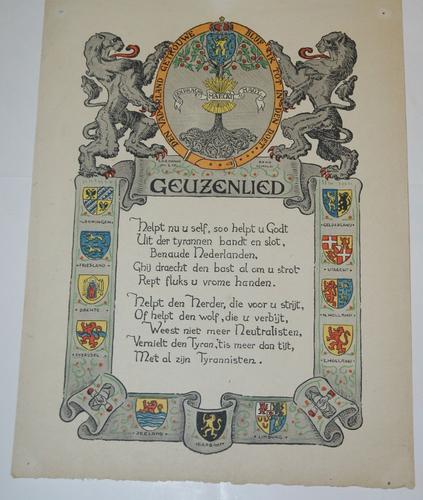 DEN VADERLAND GETROUWE BLIJF IK TOT IN DEN DOET
GEUZENLIED
Helpt nu u self, soo helpt u Godt
Uit der tyrannen bandt en slot,
Benaude Nederlanden,
Ghij draecht den bast al om u strot
Rept fluks u vrome handen.
Helpt den Herder, die voor u strijt,
Of helpt den wolf, die u verbijt,
Weest niet meer Neutralisten,
Vernielt den Tyran, 'tis meer dan tijt,
Met al zijn Tyrannisten.
GRONINGEN
FRIESLAND
DRENTE
OVERIJSEL
GELDERLAND
UTRECHT
N. HOLLAND
Z. HOLLAND
ZEELAND
N. BRABANT
LIMBURG